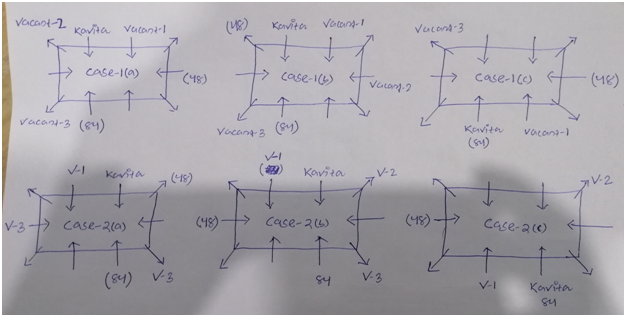 Vacant-2 Kavita Vacant-1
Case-1(a) (48)
Vacant-3 (84)
(48) Kavita Vacant-1
Case-1(b) Vacant-2
Vacant-3 (84)
Vacant-3
Case-1(c) (48)
Kavita Vacant-1
(84)
V-1 Kavita (48)
V-3 Case-2(a)
(84) V-3
V-1
Kavita V-2
(48) Case-2(b)
84 V-3
V-2
(48) Case-2(c)
V-1 Kavita
84